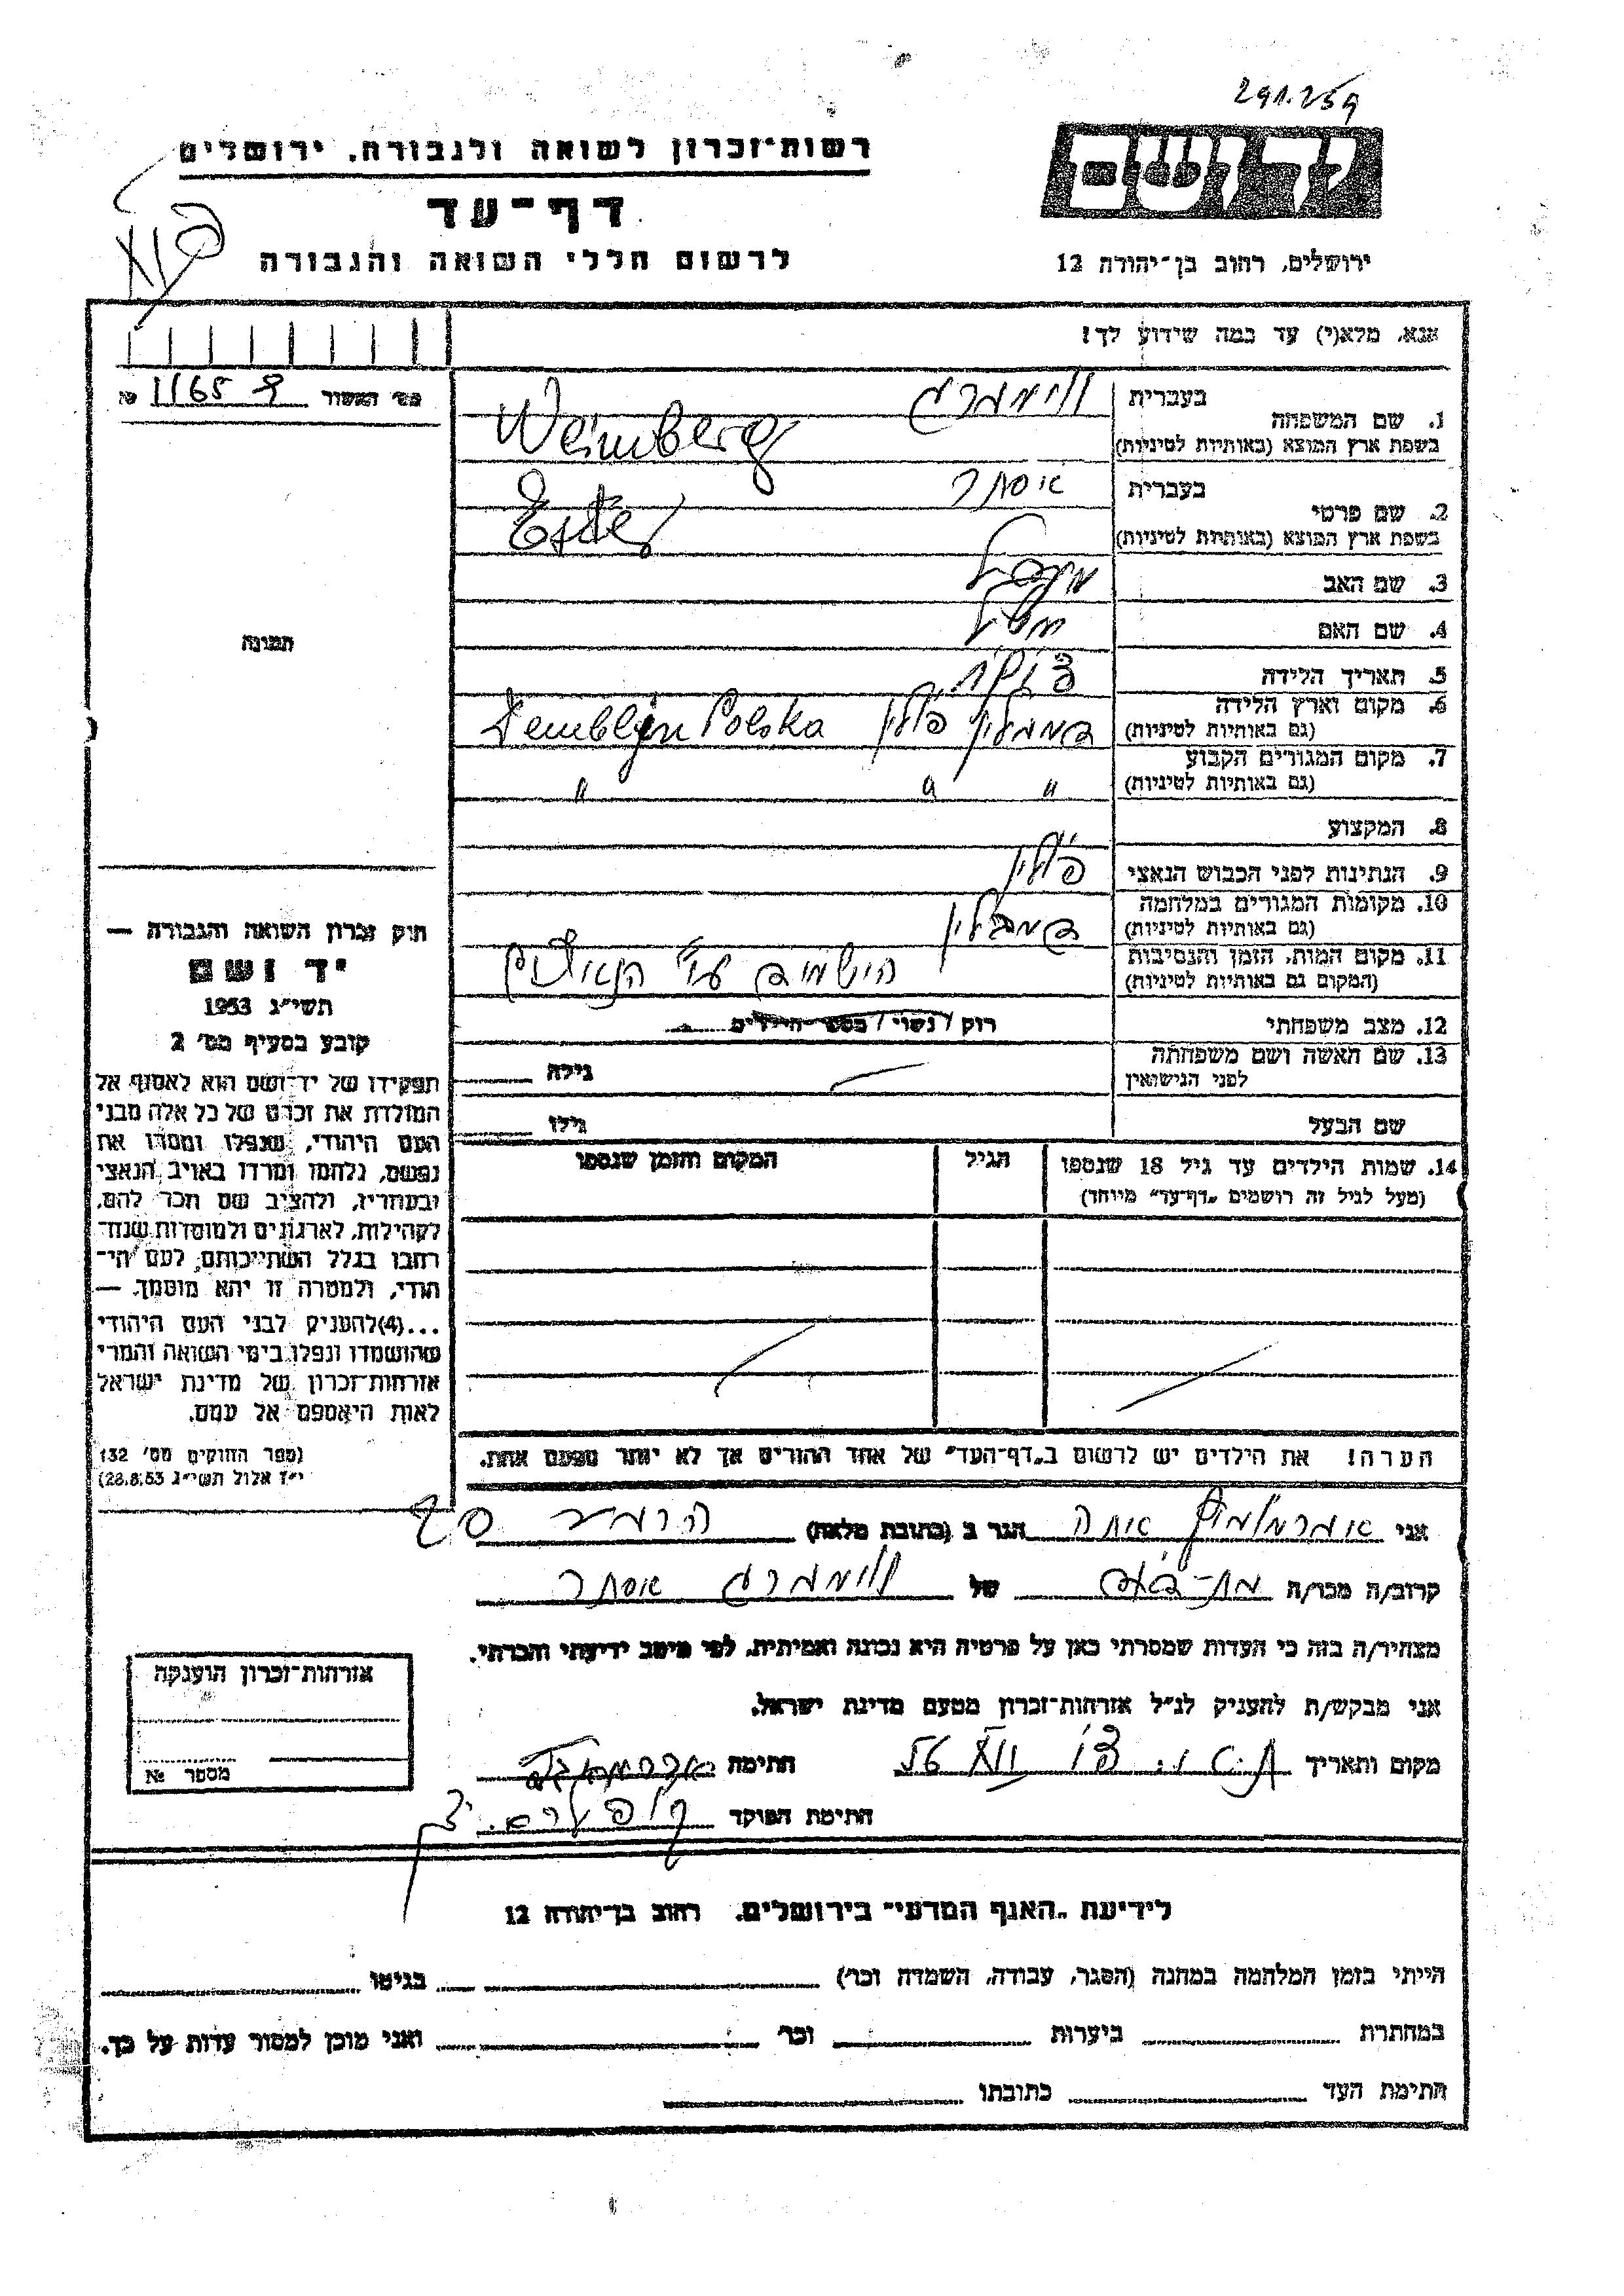 291.259
רשות־זכרון לשואה ולגבורה, ירושלים
יד ושם
דף־עד
לרשום חללי השואה והגבורה
ירושלים, רחוב בן־יהודה 12
אנא, מלא(י) עד כמה שידוע לך!
מס' האשור 1165 №
1. שם המשפחה
בעברית וויימברג
בשפת ארץ המוצא (באותיות לטיניות) Weimberg
2. שם פרטי
בעברית אסתר
בשפת ארץ המוצא (באותיות לטיניות) Ester
3. שם האב
4. שם האם
5. תאריך הלידה
6. מקום וארץ הלידה
(גם באותיות לטיניות) פולין Demblyn Polska
7. מקום המגורים הקבוע
(גם באותיות לטיניות) " " "
8. המקצוע
9. הנתינות לפני הכבוש הנאצי פולין
10. מקומות המגורים במלחמה
(גם באותיות לטיניות) דמבלין
11. מקום המות, הזמן והנסיבות
(המקום גם באותיות לטיניות) ע"י הנאצים
12. מצב משפחתי רוק / נשוי / מספר הילדים
13. שם האשה ושם משפחתה גילה
לפני הנישואין
שם הבעל גילו
14. שמות הילדים עד גיל 18 שנספו הגיל המקום והזמן שנספו
(מעל לגיל זה רושמים „דף־עד" מיוחד)
הערה! את הילדים יש לרשום ב„דף־העד" של אחד ההורים אך לא יותר מפעם אחת.
תמונה
חוק זכרון השואה והגבורה —
יד ושם
תשי"ג 1953
קובע בסעיף מס' 2
תפקידו של יד־ושם הוא לאסוף אל
המולדת את זכרם של כל אלה מבני
העם היהודי, שנפלו ומסרו את
נפשם, נלחמו ומרדו באויב הנאצי
ובעוזריו, ולהציב שם וזכר להם,
לקהילות, לארגונים ולמוסדות שנח־
רבו בגלל השתייכותם לעם הי־
הודי, ולמטרה זו יהא מוסמך. —
...(4)להעניק לבני העם היהודי
שהושמדו ונפלו בימי השואה והמרי
אזרחות־זכרון של מדינת ישראל
לאות היאספם אל עמם.
(ספר החוקים מס' 132
י"ז אלול תשי"ג 28.8.53)
אני הגר ב (כתובת מלאה)
קרוב/ה מכר/ה של וויימברג אסתר
מצהיר/ה בזה כי העדות שמסרתי כאן על פרטיה היא נכונה ואמיתית, לפי מיטב ידיעתי והכרתי.
אני מבקש/ת להעניק לנ"ל אזרחות־זכרון מטעם מדינת ישראל.
מקום ותאריך חתימה
חתימת הפוקד
אזרחות־זכרון הוענקה
מספר №
לידיעת „האגף המדעי" בירושלים, רחוב בן־יהודה 12
הייתי בזמן המלחמה במחנה (הסגר, עבודה, השמדה וכו') בגיטו
במחתרת ביערות וכו' ואני מוכן למסור עדות על כך.
חתימת העד כתובתו